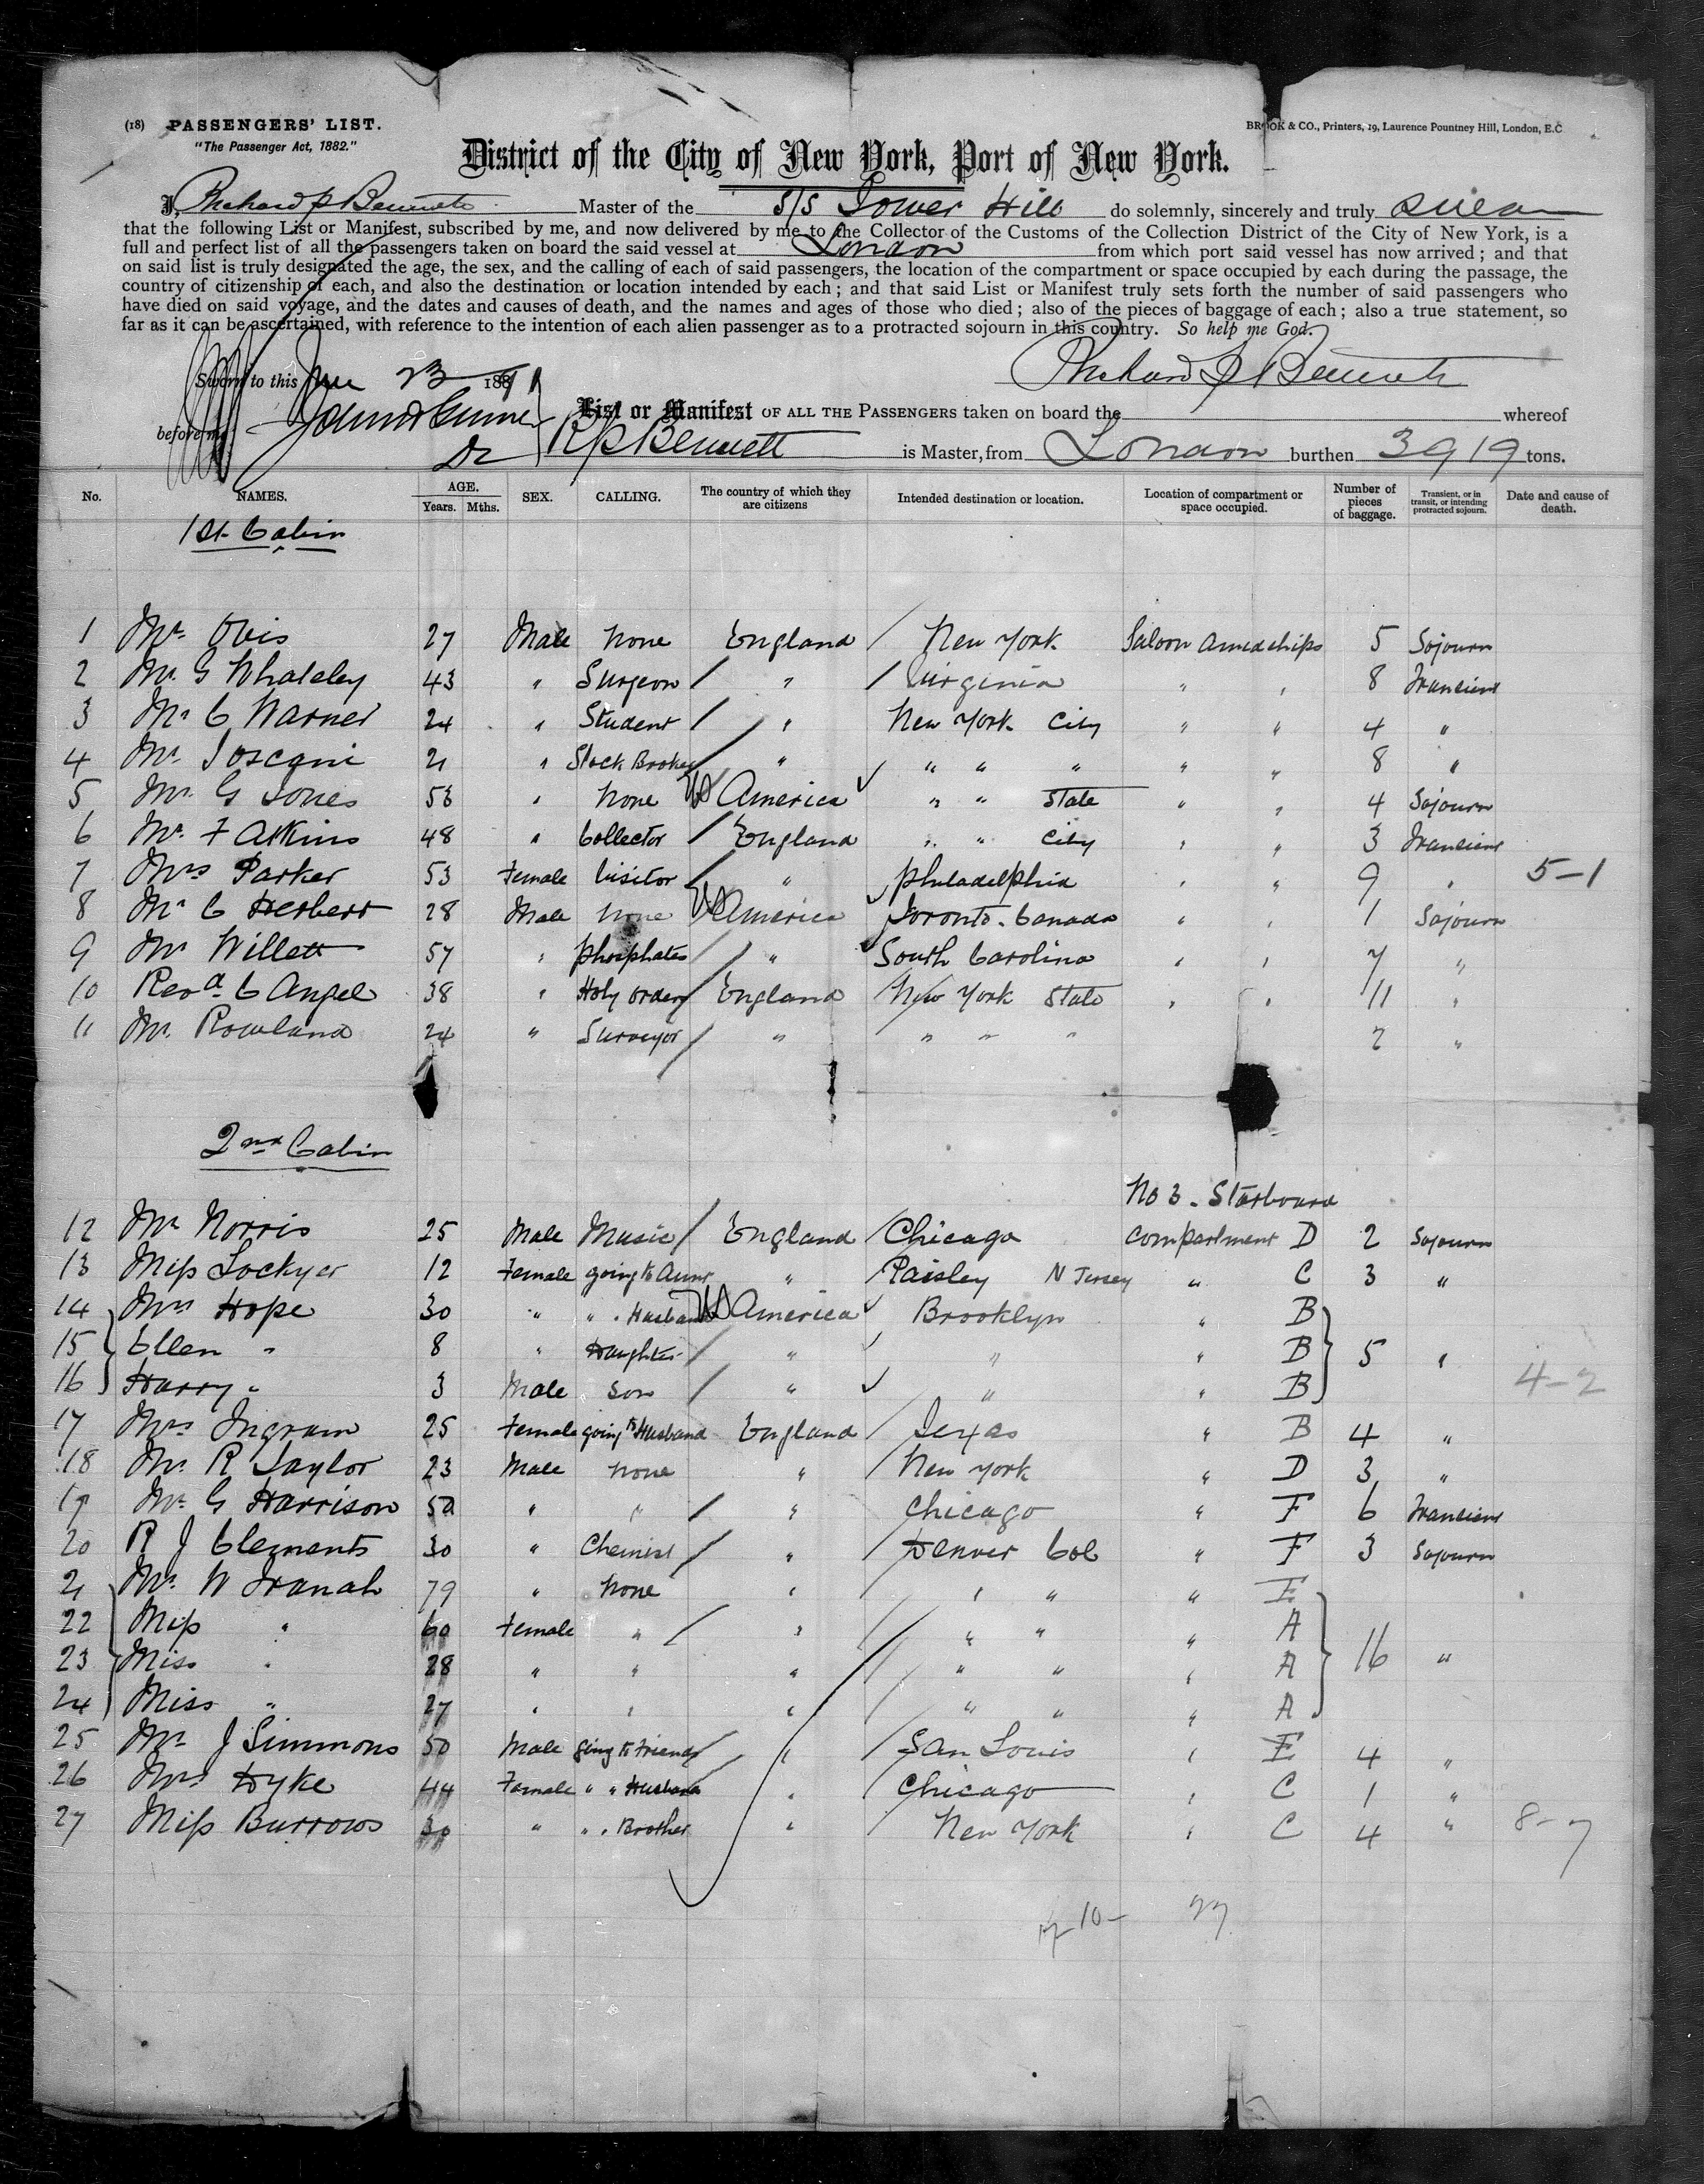 (18) PASSENGERS' LIST.
BROOK & CO., Printers, 19, Laurence Pountney Hill, London, E.C
"The Passenger Act, 1882."
District of the City of New York, Port of New York.
I, Richard P Bennett Master of the S/S Tower Hill do solemnly, sincerely and truly swear
that the following List or Manifest, subscribed by me, and now delivered by me to the Collector of the Customs of the Collection District of the City of New York, is a
full and perfect list of all the passengers taken on board the said vessel at London from which port said vessel has now arrived; and that
on said list is truly designated the age, the sex, and the calling of each of said passengers, the location of the compartment or space occupied by each during the passage, the
country of citizenship of each, and also the destination or location intended by each; and that said List or Manifest truly sets forth the number of said passengers who
have died on said voyage, and the dates and causes of death, and the names and ages of those who died; also of the pieces of baggage of each; also a true statement, so
far as it can be ascertained, with reference to the intention of each alien passenger as to a protracted sojourn in this country. So help me God.
Sworn to this 23 1891
Richard P Bennett
before me
List or Manifest OF ALL THE PASSENGERS taken on board the whereof
R P Bennett is Master, from London burthen 3919 tons.
No. NAMES. AGE. Years. Mths. SEX. CALLING. The country of which they are citizens Intended destination or location. Location of compartment or space occupied. Number of pieces of baggage. Transient, or in transit, or intending protracted sojourn. Date and cause of death.
1st Cabin
1 Mr. Ovis 27 Male None England New York Saloon Amidships 5 Sojourn
2 Mr. G Whateley 43 " Surgeon " Virginia " " 8 Transient
3 Mr C Warner 24 " Student " New York City " " 4 "
4 Mr. Toscani 21 " Stock Broker " " " " " " 8 "
5 Mr. G Jones 53 " None US America " " State " " 4 Sojourn
6 Mr. F Atkins 48 " Collector England " " City " " 3 Transient
7 Mrs Parker 53 Female Visitor " Philadelphia " " 9 " 5-1
8 Mr C Herbert 28 Male None US America Toronto. Canada " " 1 Sojourn
9 Mr Willett 57 " Phosphates " South Carolina " " 7 "
10 Revd. C Angel 38 " Holy Orders England New York State " " 11 "
11 Mr. Rowland 24 " Surveyor " " " " 2 "
2nd Cabin
No 3. Starboard
12 Mr Norris 25 Male Music England Chicago Compartment D 2 Sojourn
13 Miss Lockyer 12 Female going to Aunt " Paisley N Jersey " C 3 "
14 Mrs Hope 30 " " " Husband US America Brooklyn " B
15 Ellen " 8 " Daughter " " " B 5 "
16 Harry " 3 Male Son " " " B 4-2
17 Mrs Ingram 25 Female going to Husband England Texas " B 4 "
18 Mr. R Taylor 23 Male None " New York " D 3 "
19 Mr. G Harrison 50 " " " Chicago " F 6 Transient
20 R J Clements 30 " Chemist " Denver Col " F 3 Sojourn
21 Mr. W 79 " None " " " " E
22 Miss " 60 Female " " " " " A
23 Miss " 28 " " " " " " A 16 "
24 Miss " 27 " " " " " " A
25 Mr J Simmons 50 Male going to Friends " San Louis " E 4 "
26 Mrs Dyke 44 Female " " Husband " Chicago " C 1 "
27 Miss Burrows 30 " " " Brother " New York " C 4 " 8-7
10- 27